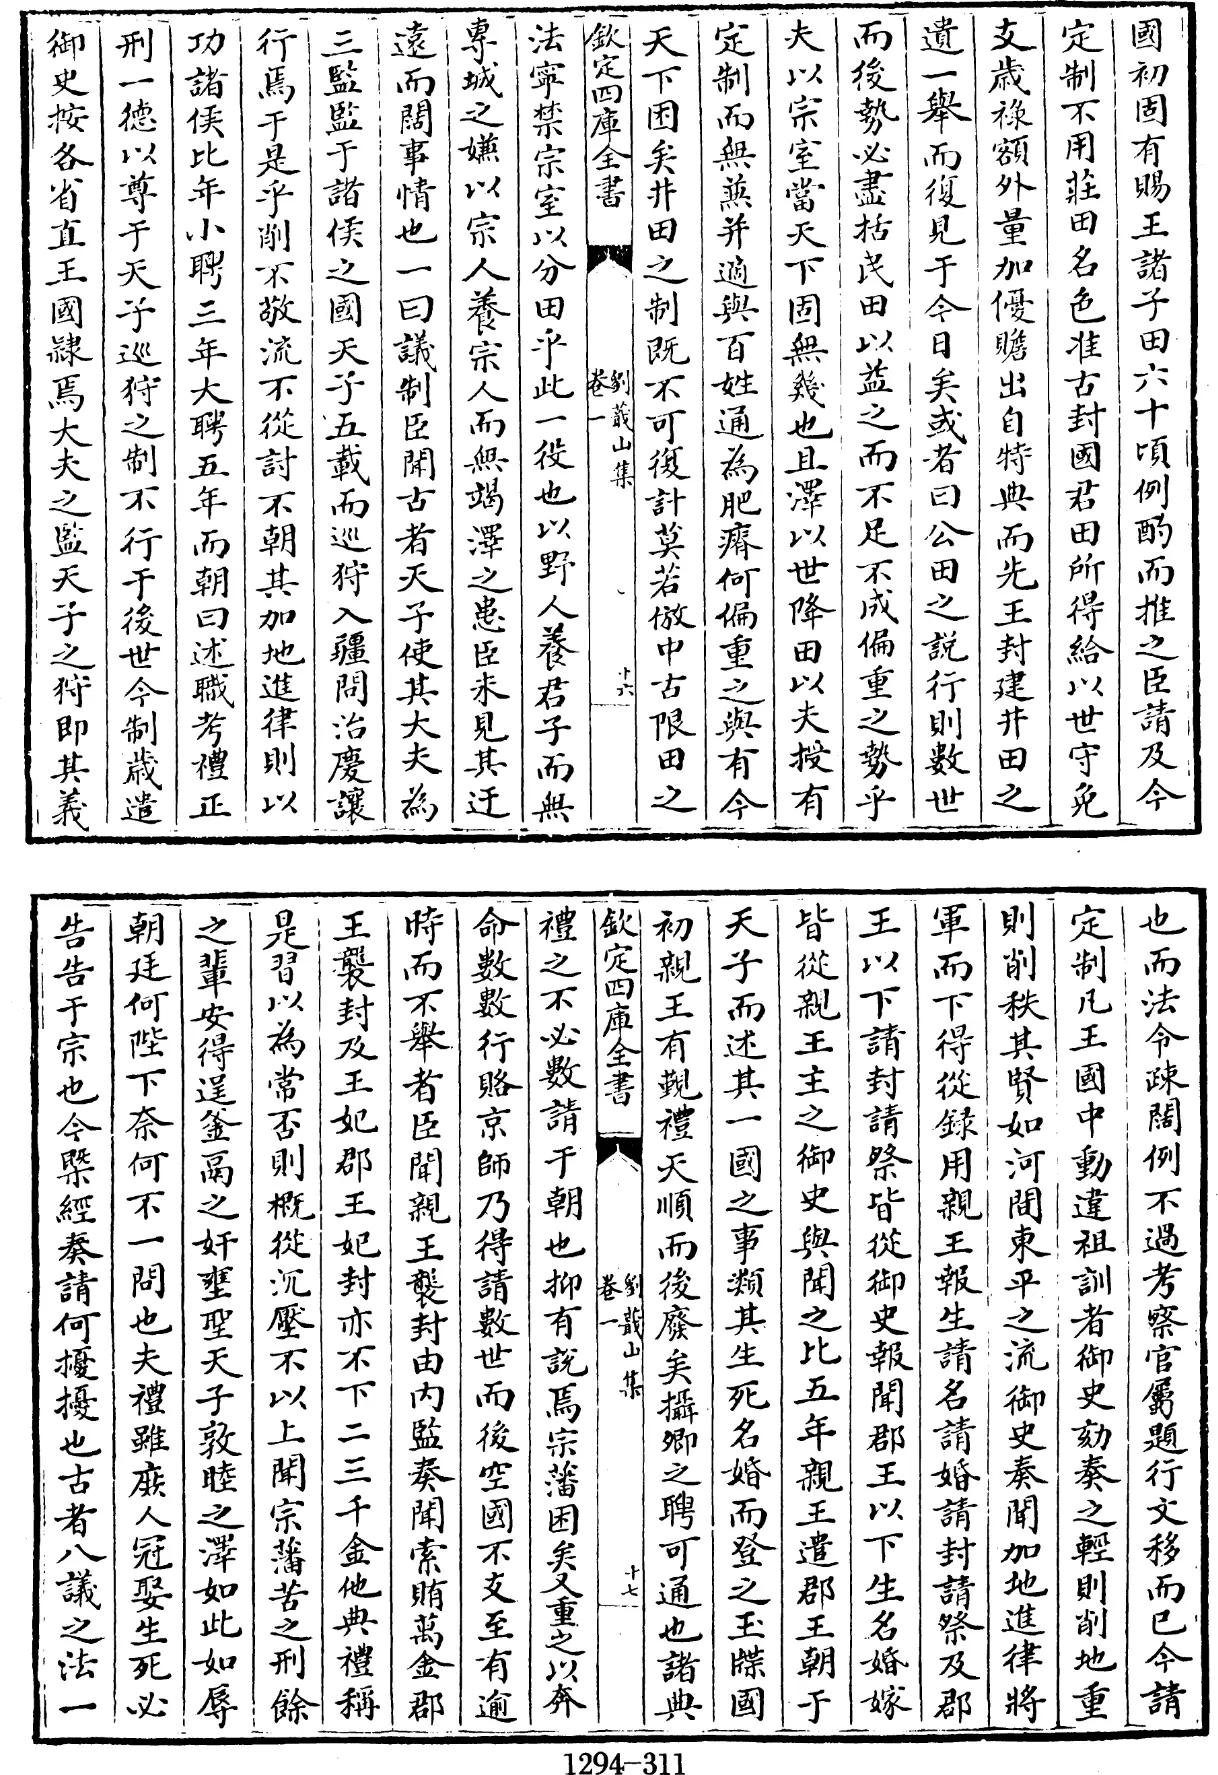 國初固有賜王諸子田六十頃例酌而推之臣請及今
定制不用莊田名色准古封國君田所得給以世守免
支歲祿額外量加優贍出自特典而先王封建井田之
遺一舉而復見于今日矣或者曰公田之說行則數世
而後勢必盡括民田以益之而不足不成偏重之勢乎
夫以宗室當天下固無幾也且澤以世降田以夫授有
定制而無兼并適與百姓通為肥瘠何偏重之與有今
天下困矣井田之制既不可復計莫若倣中古限田之
欽定四庫全書
劉蕺山集
卷一
十六
法寧禁宗室以分田乎此一役也以野人養君子而無
專城之嫌以宗人養宗人而無竭澤之患臣未見其迂
遠而闊事情也一曰議制臣聞古者天子使其大夫為
三監監于諸侯之國天子五載而巡狩入疆問治慶讓
行焉于是乎削不敬流不從討不朝其加地進律則以
功諸侯比年小聘三年大聘五年而朝曰述職考禮正
刑一德以尊于天子巡狩之制不行于後世今制歲遣
御史按各省直王國隸焉大夫之監天子之狩即其義
也而法令疎闊例不過考察官屬題行文移而已今請
定制凡王國中動違祖訓者御史劾奏之輕則削地重
則削秩其賢如河間東平之流御史奏聞加地進律將
軍而下得從録用親王報生請名請婚請封請祭及郡
王以下請封請祭皆從御史報聞郡王以下生名婚嫁
皆從親王主之御史與聞之比五年親王遣郡王朝于
天子而述其一國之事類其生死名婚而登之玉牒國
初親王有覲禮天順而後廢矣攝卿之聘可通也諸典
欽定四庫全書
劉蕺山集
卷一
十七
禮之不必數請于朝也抑有說焉宗藩困矣又重之以奔
命數數行賂京師乃得請數世而後空國不支至有逾
時而不舉者臣聞親王襲封由内監奏聞索賄萬金郡
王襲封及王妃郡王妃封亦不下二三千金他典禮稱
是習以為常否則概從沉壓不以上聞宗藩苦之刑餘
之輩安得逞釜鬲之奸壅聖天子敦睦之澤如此如辱
朝廷何陛下奈何不一問也夫禮雖庶人冠娶生死必
告告于宗也今槩經奏請何擾擾也古者八議之法一
1294-311